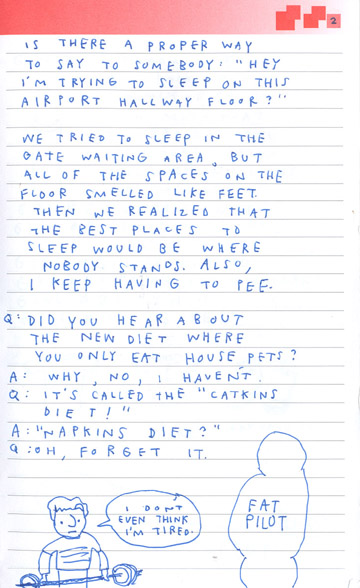 2
IS THERE A PROPER WAY
TO SAY TO SOMEBODY: "HEY
I'M TRYING TO SLEEP ON THIS
AIRPORT HALLWAY FLOOR?"
WE TRIED TO SLEEP IN THE
GATE WAITING AREA, BUT
ALL OF THE SPACES ON THE
FLOOR SMELLED LIKE FEET.
THEN WE REALIZED THAT
THE BEST PLACES TO
SLEEP WOULD BE WHERE
NOBODY STANDS. ALSO,
I KEEP HAVING TO PEE.
Q: DID YOU HEAR ABOUT
THE NEW DIET WHERE
YOU ONLY EAT HOUSE PETS?
A: WHY, NO, I HAVEN'T.
Q: IT'S CALLED THE "CATKINS
DIET!"
A: "NAPKINS DIET?"
Q: OH, FORGET IT.
I DON'T
EVEN THINK
I'M TIRED.
FAT
PILOT